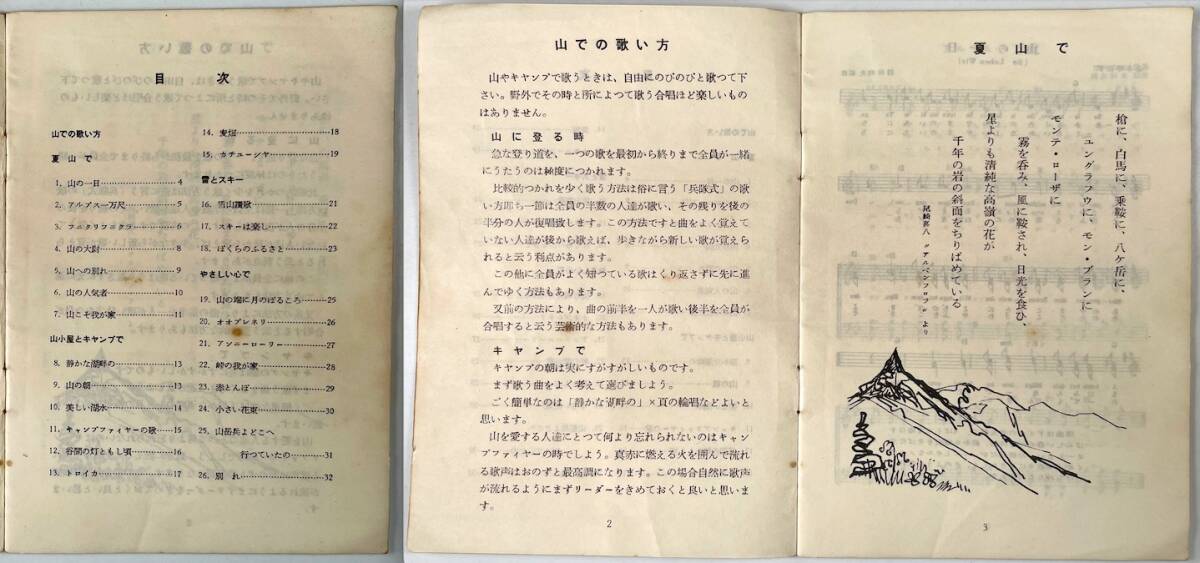 目次
山での歌い方
夏山で
1. 山の一日…………4
2. アルプス一万尺…………5
3. フニクリフニクラ…………6
4. 山の大尉…………8
5. 山への別れ…………9
6. 山の人気者…………10
7. 山こそ我が家…………11
山小屋とキャンプで
8. 静かな湖畔の…………13
9. 山の朝…………13
10. 美しい湖水…………14
11. キャンプファイヤーの歌……15
12. 谷間の灯ともし頃…………16
13. トロイカ…………17
14. 麦畑…………18
15. カチューシヤ…………19
雪とスキー
16. 雪山讃歌…………21
17. スキーは楽し…………22
18. ぼくらのふるさと…………23
やさしい心で
19. 山の端に月のぼるころ……25
20. オオブレネリ…………26
21. アンニーローリー…………27
22. 峠の我が家…………28
23. 赤とんぼ…………29
24. 小さい花束…………30
25. 山岳兵よどこへ
行つていたの…………31
26. 別れ…………32
山での歌い方
山やキャンプで歌うときは、自由にのびのびと歌つて下
さい。野外でその時と所によつて歌う合唱ほど楽しいもの
はありません。
山に登る時
急な登り道を、一つの歌を最初から終りまで全員が一緒
にうたうのは極度につかれます。
比較的つかれを少く歌う方法は俗に言う「兵隊式」の歌
い方即ち一節は全員の半数の人達が歌い、その残りを後の
半分の人が復唱致します。この方法ですと曲をよく覚えて
いない人達が後から歌えば、歩きながら新しい歌が覚えら
れると云う利点があります。
この他に全員がよく知つている歌はくり返さずに先に進
んでゆく方法もあります。
又前の方法により、曲の前半を一人が歌い後半を全員が
合唱すると云う芸術的な方法もあります。
キャンプで
キャンプの朝は実にすがすがしいものです。
まず歌う曲をよく考えて選びましよう。
ごく簡単なのは「静かな湖畔の」×頁の輪唱などよいと
思います。
山を愛する人達にとつて何より忘れられないのはキャン
プファイヤーの時でしよう。真赤に燃える火を囲んで流れ
る歌声はおのずと最高調になります。この場合自然に歌声
が流れるようにまずリーダーをきめておくと良いと思いま
す。
2
夏山で
槍に、白馬に、乗鞍に、八ケ岳に、
ユングフラウに、モン・ブランに
モンテ・ローザに
霧を呑み、風に鞍され、日光を食ひ、
星よりも清純な高嶺の花が
千年の岩の斜面をちりばめている
尾崎喜八 〃アルペンフロラル〃より
3